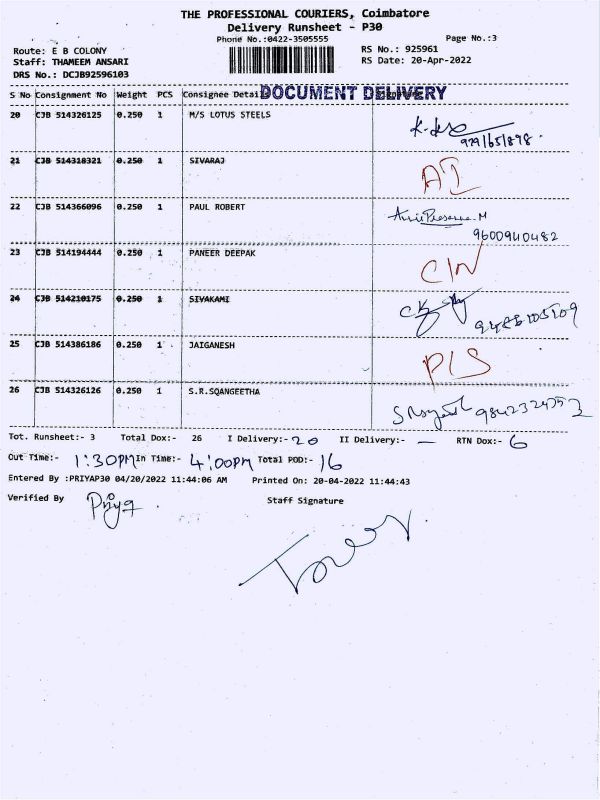 THE PROFESSIONAL COURIERS, Coimbatore
Delivery Runsheet - P30
Phone No.:0422-3505555
Page No.:3
Route: E B COLONY
RS No.: 925961
Staff: THAMEEM ANSARI
RS Date: 20-Apr-2022
DRS No.: DCJB92596103
S No Consignment No Weight PCS Consignee Detail DOCUMENT DELIVERY
20 CJB 514326125 0.250 1 M/S LOTUS STEELS
21 CJB 514318321 0.250 1 SIVARAJ
22 CJB 514366096 0.250 1 PAUL ROBERT
9600940482
23 CJB 514194444 0.250 1 PANEER DEEPAK CIN
24 CJB 514210175 0.250 1 SIVAKAMI
25 CJB 514386186 0.250 1 JAIGANESH PLS
26 CJB 514326126 0.250 1 S.R.SQANGEETHA
Tot. Runsheet:- 3 Total Dox:- 26 I Delivery:- 20 II Delivery:- — RTN Dox:- 6
Out Time:- 1:30PM In Time:- 4:00PM Total POD:- 16
Entered By :PRIYAP30 04/20/2022 11:44:06 AM Printed On: 20-04-2022 11:44:43
Verified By Priya Staff Signature